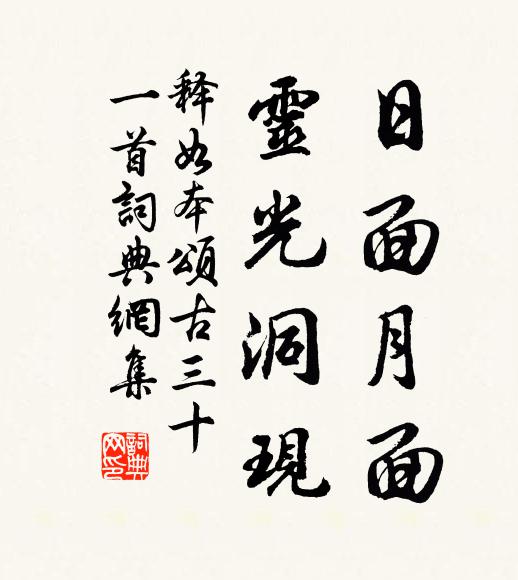 日面月面
靈光洞現
释如本頌古三十
一首詞典網集
詞典网印